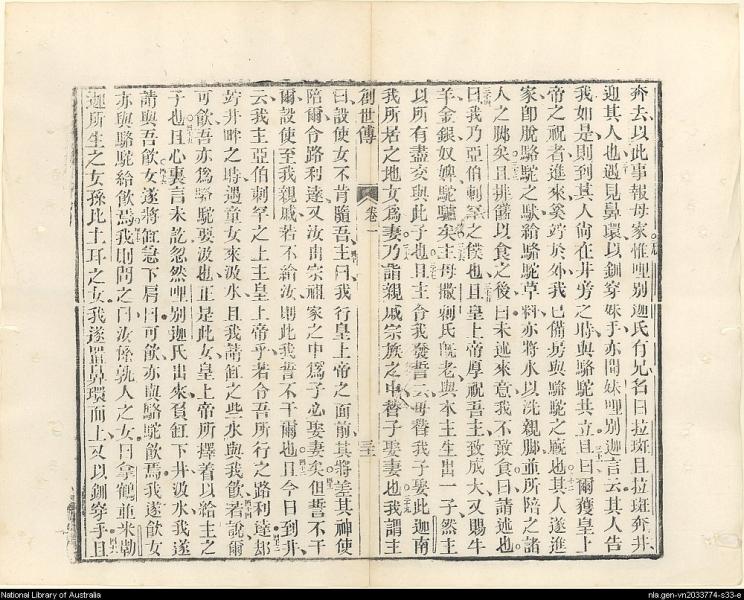 奔去以此事報母家惟哩別迦氏有兄名曰拉班且拉班奔井
迎其人也遇見鼻環以釧穿妹手亦聞妹哩別迦言云其人告
我如是則到其人尚在井旁之時與駱駝其立且曰爾獲皇上
帝之祝者進來奚竚於外我已備房與駱駝之廐也其人遂進
家卽脫駱駝之馱給駱駝草料亦將水以洗親脚並所陪之諸
人之脚矣且排饍以食之後曰未述來意我不敢食曰請述也
曰我乃亞伯剌罕之僕也且皇上帝厚祝吾主致成大又賜牛
羊金銀奴婢駝驢矣主母撒剌氏旣老與本主生出一子然主
以所有盡交與此子也且主令我發誓云毋替我子娶此迦南
我所居之地女爲妻乃詣親戚宗族之中替子娶妻也我謂主
創世傳 卷一 三十
曰設使女不肯隨吾主曰我行皇上帝之面前其將差其神使
陪爾令路利達又汝由宗祖家之中爲子必娶妻矣但誓不干
爾設使至我親戚若不給汝則此我誓不干爾也且今日到井
云我主亞伯剌罕之上主皇上帝乎若令吾所行之路利達却
竚井畔之時遇童女來汲水且我請缸之些水與我飲若說爾
可飲吾亦爲駱駝要汲也正是此女皇上帝所擇着以給主之
子也且心裏言未訖忽然哩別迦氏出來肩缸下井汲水我遂
請與吾飲女遂將缸急下肩曰可飲亦與駱駝飲焉我遂飲女
亦與駱駝給飲焉我則問之曰汝係孰人之女曰拿鶴並米勒
迦所生之女孫比土耳之女我遂置鼻環面上又以釧穿手且
National Library of Australia
nla.gen-vn2033774-s33-e